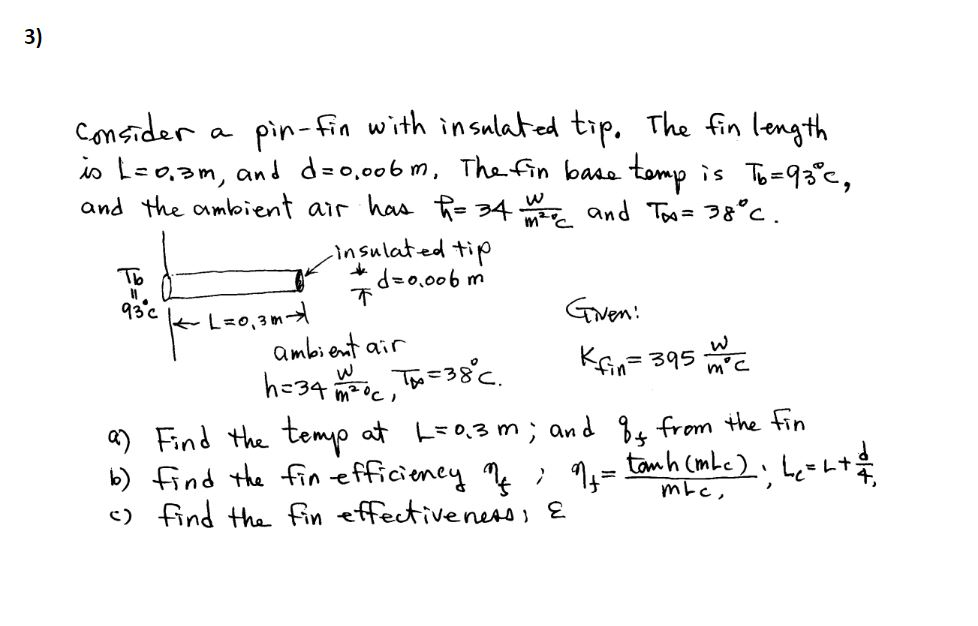 3)
Consider a pin-fin with insulated tip. The fin length
is L=0.3m, and d=0.006 m, The fin base temp is Tb=93°c,
and the ambient air has h̄= 34 W/m²°C and T∞= 38°C.
insulated tip
d=0.006 m
Tb
=
93°c
L=0,3m
Given:
ambient air
Kfin= 395 W/m°C
h=34 W/m²°C, T∞=38°C.
a) Find the temp at L=0.3 m; and qf from the fin
b) find the fin efficiency ηf ; ηf= tanh(mLc)/mLc, ; Lc=L+d/4,
c) find the fin effectiveness; ε